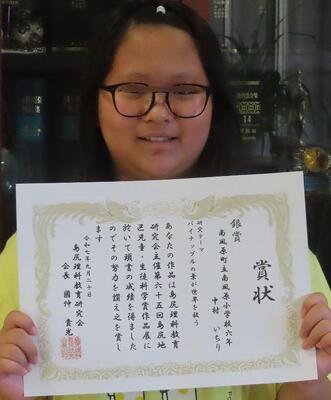 賞状
銀賞
南風原町立南風原小学校六年
中村 いちり
研究テーマ
パイナップルの葉が世界を救う
あなたの作品は島尻理科教育
研究会主催第六十五回島尻地
区児童・生徒科学賞作品展に
於いて頭書の成績を得ました
のでその努力を讃え之を賞し
ます
令和七年九月二十日
島尻理科教育研究会
会長 國仲 寛光
14